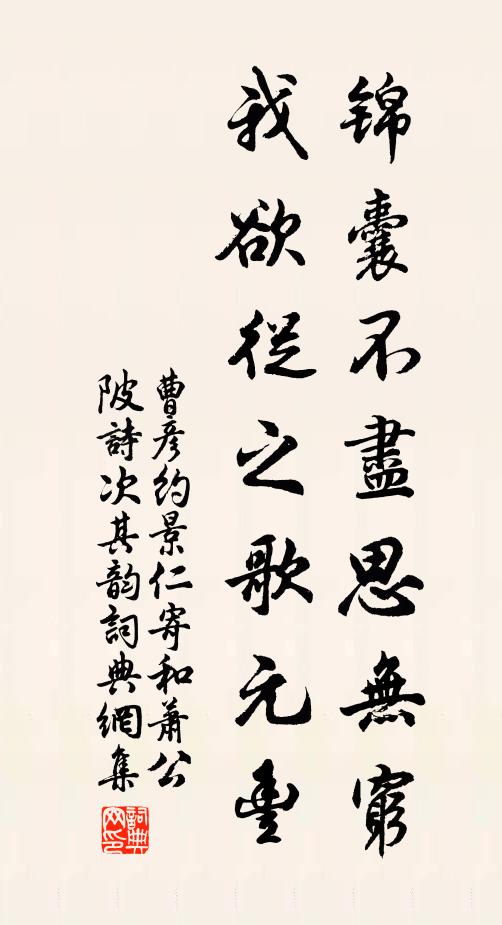 锦囊不盡思無窮
我欲從之歌元豊
曹彦約景仁寄和蕭公
陂詩次其韵詞典網集
詞典網印